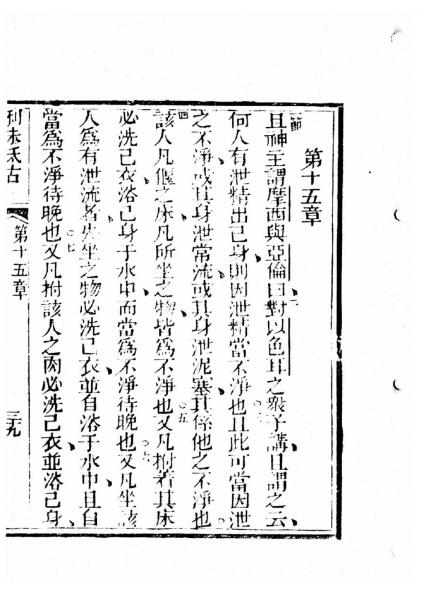 第十五章
節一且神主謂摩西與亞倫曰二對以色耳之衆子講且謂之云
何人有泄精出己身則因泄精當不淨也三且此可當因泄
之不淨或其身泄常流或其身泄泥塞其係他之不淨也
四該人凡偃之床凡所坐之物皆爲不淨也五又凡拊着其床
必洗己衣浴己身于水中而當爲不淨待晚也六又凡坐該
人爲有泄流者先坐之物必洗己衣並自浴于水中且自
當爲不淨待晚也七又凡拊該人之肉必洗己衣並浴己身
利未氏古
第十五章
三九